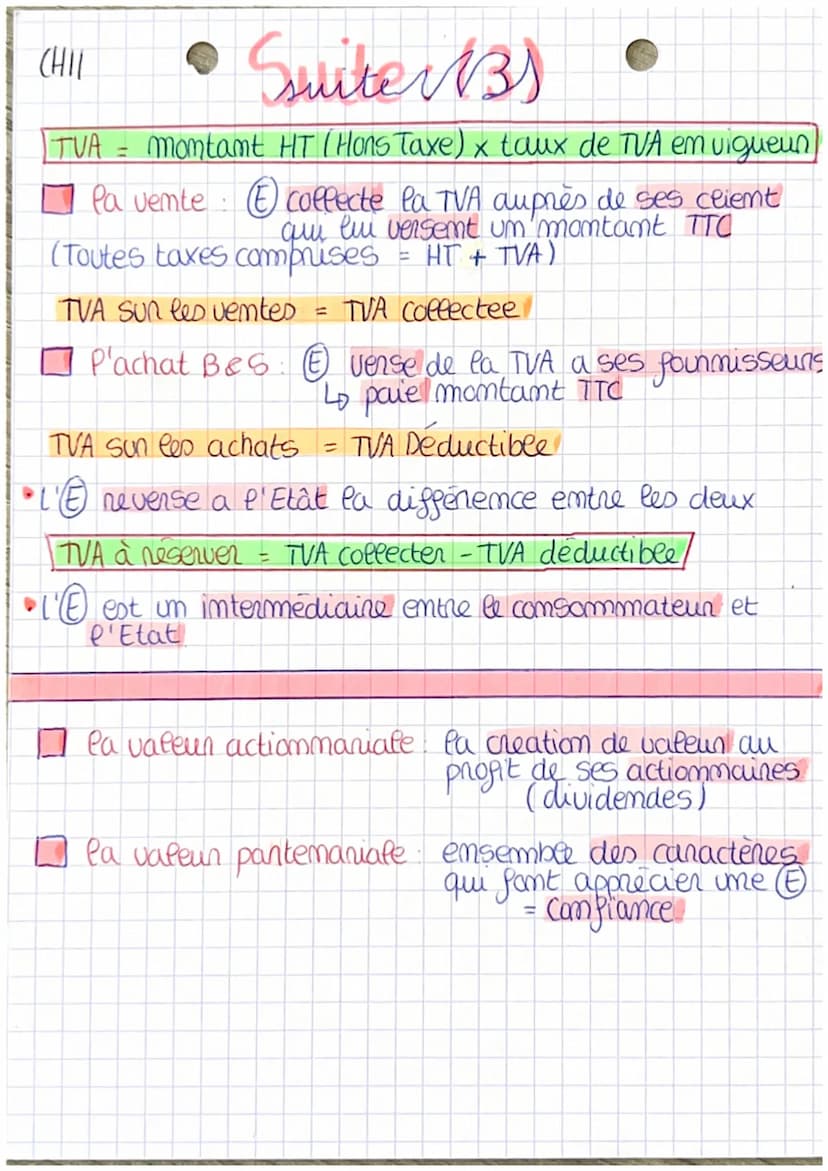 CH11
Suite (3)
TVA = montant HT (Hors Taxe) x taux de TVA en vigueur
la vente : (E) collecte la TVA auprès de ses client
qui lui versent un montant TTC
(Toutes taxes comprises = HT + TVA)
TVA sur les ventes = TVA collectee
l'achat B&S : (E) verse de la TVA a ses fournisseurs
↳ paie montant TTC
TVA sur les achats = TVA Déductible
• L'(E) reverse a l'Etât la différence entre les deux
TVA à réserver = TVA collecter - TVA déductible
• L'(E) est un intermédiaire entre le consommateur et
l'Etat
la valeur actionnariale : la creation de valeur au
profit de ses actionnaires
(dividendes)
la valeur partenariale : ensemble des caractères
qui font apprécier une (E)
= confiance